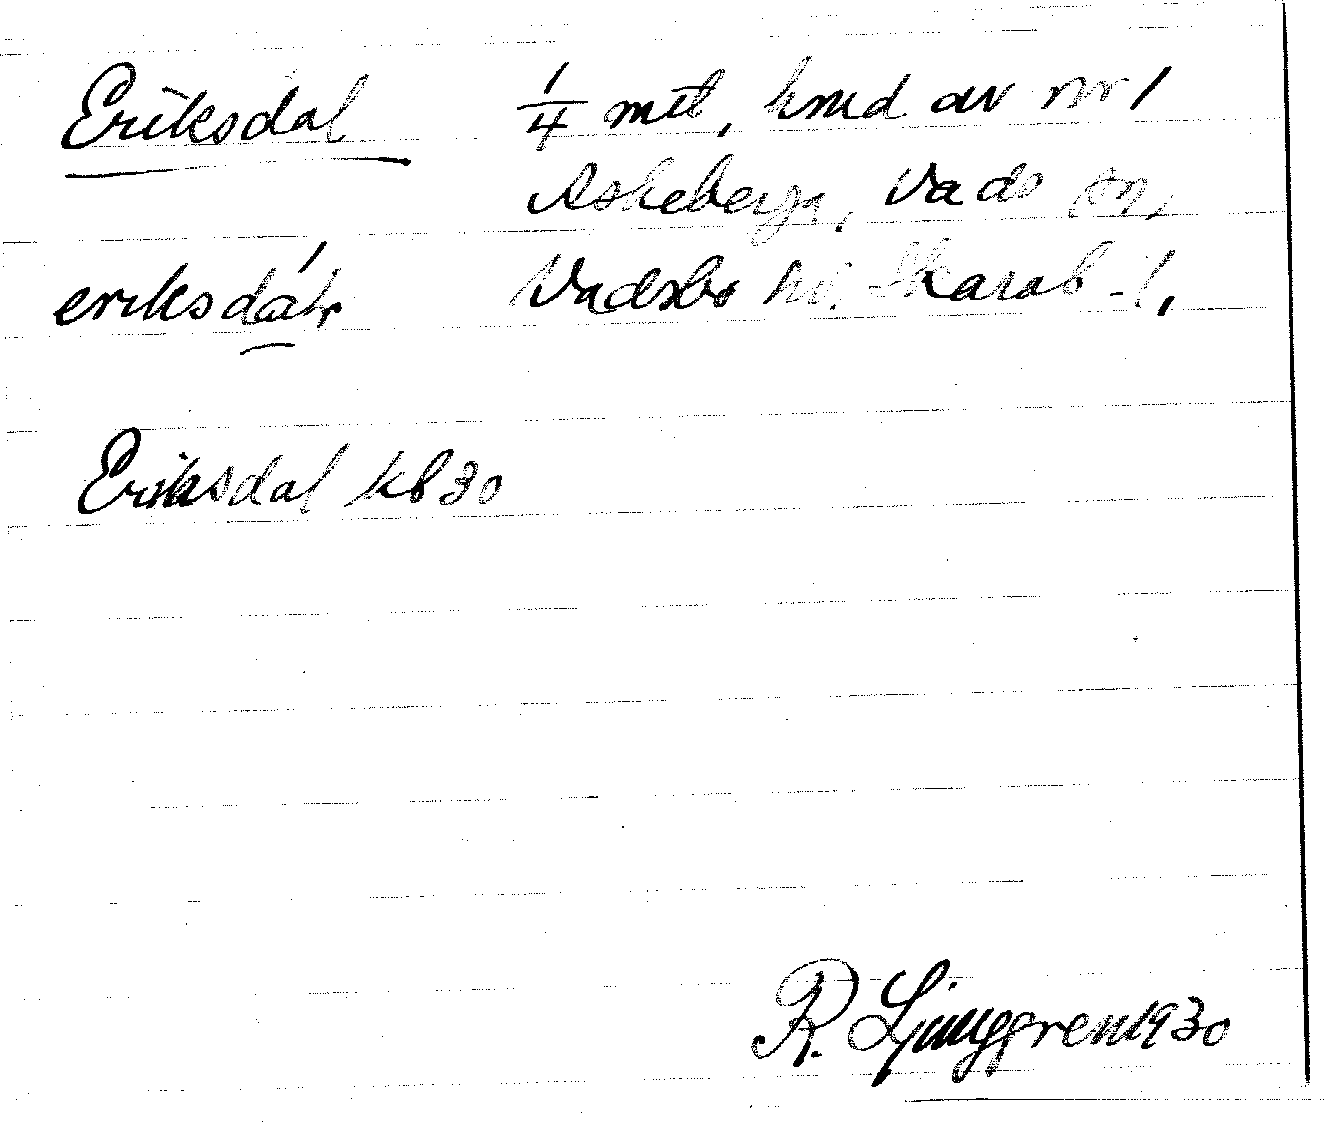 Eriksdal 1/4 mtl, hmd av nr 1
Askeberga, Vads sn,
eriksdál, Vadsbo hd. Skarab. l,
Eriksdal kb 30
R. Ljunggren 1930